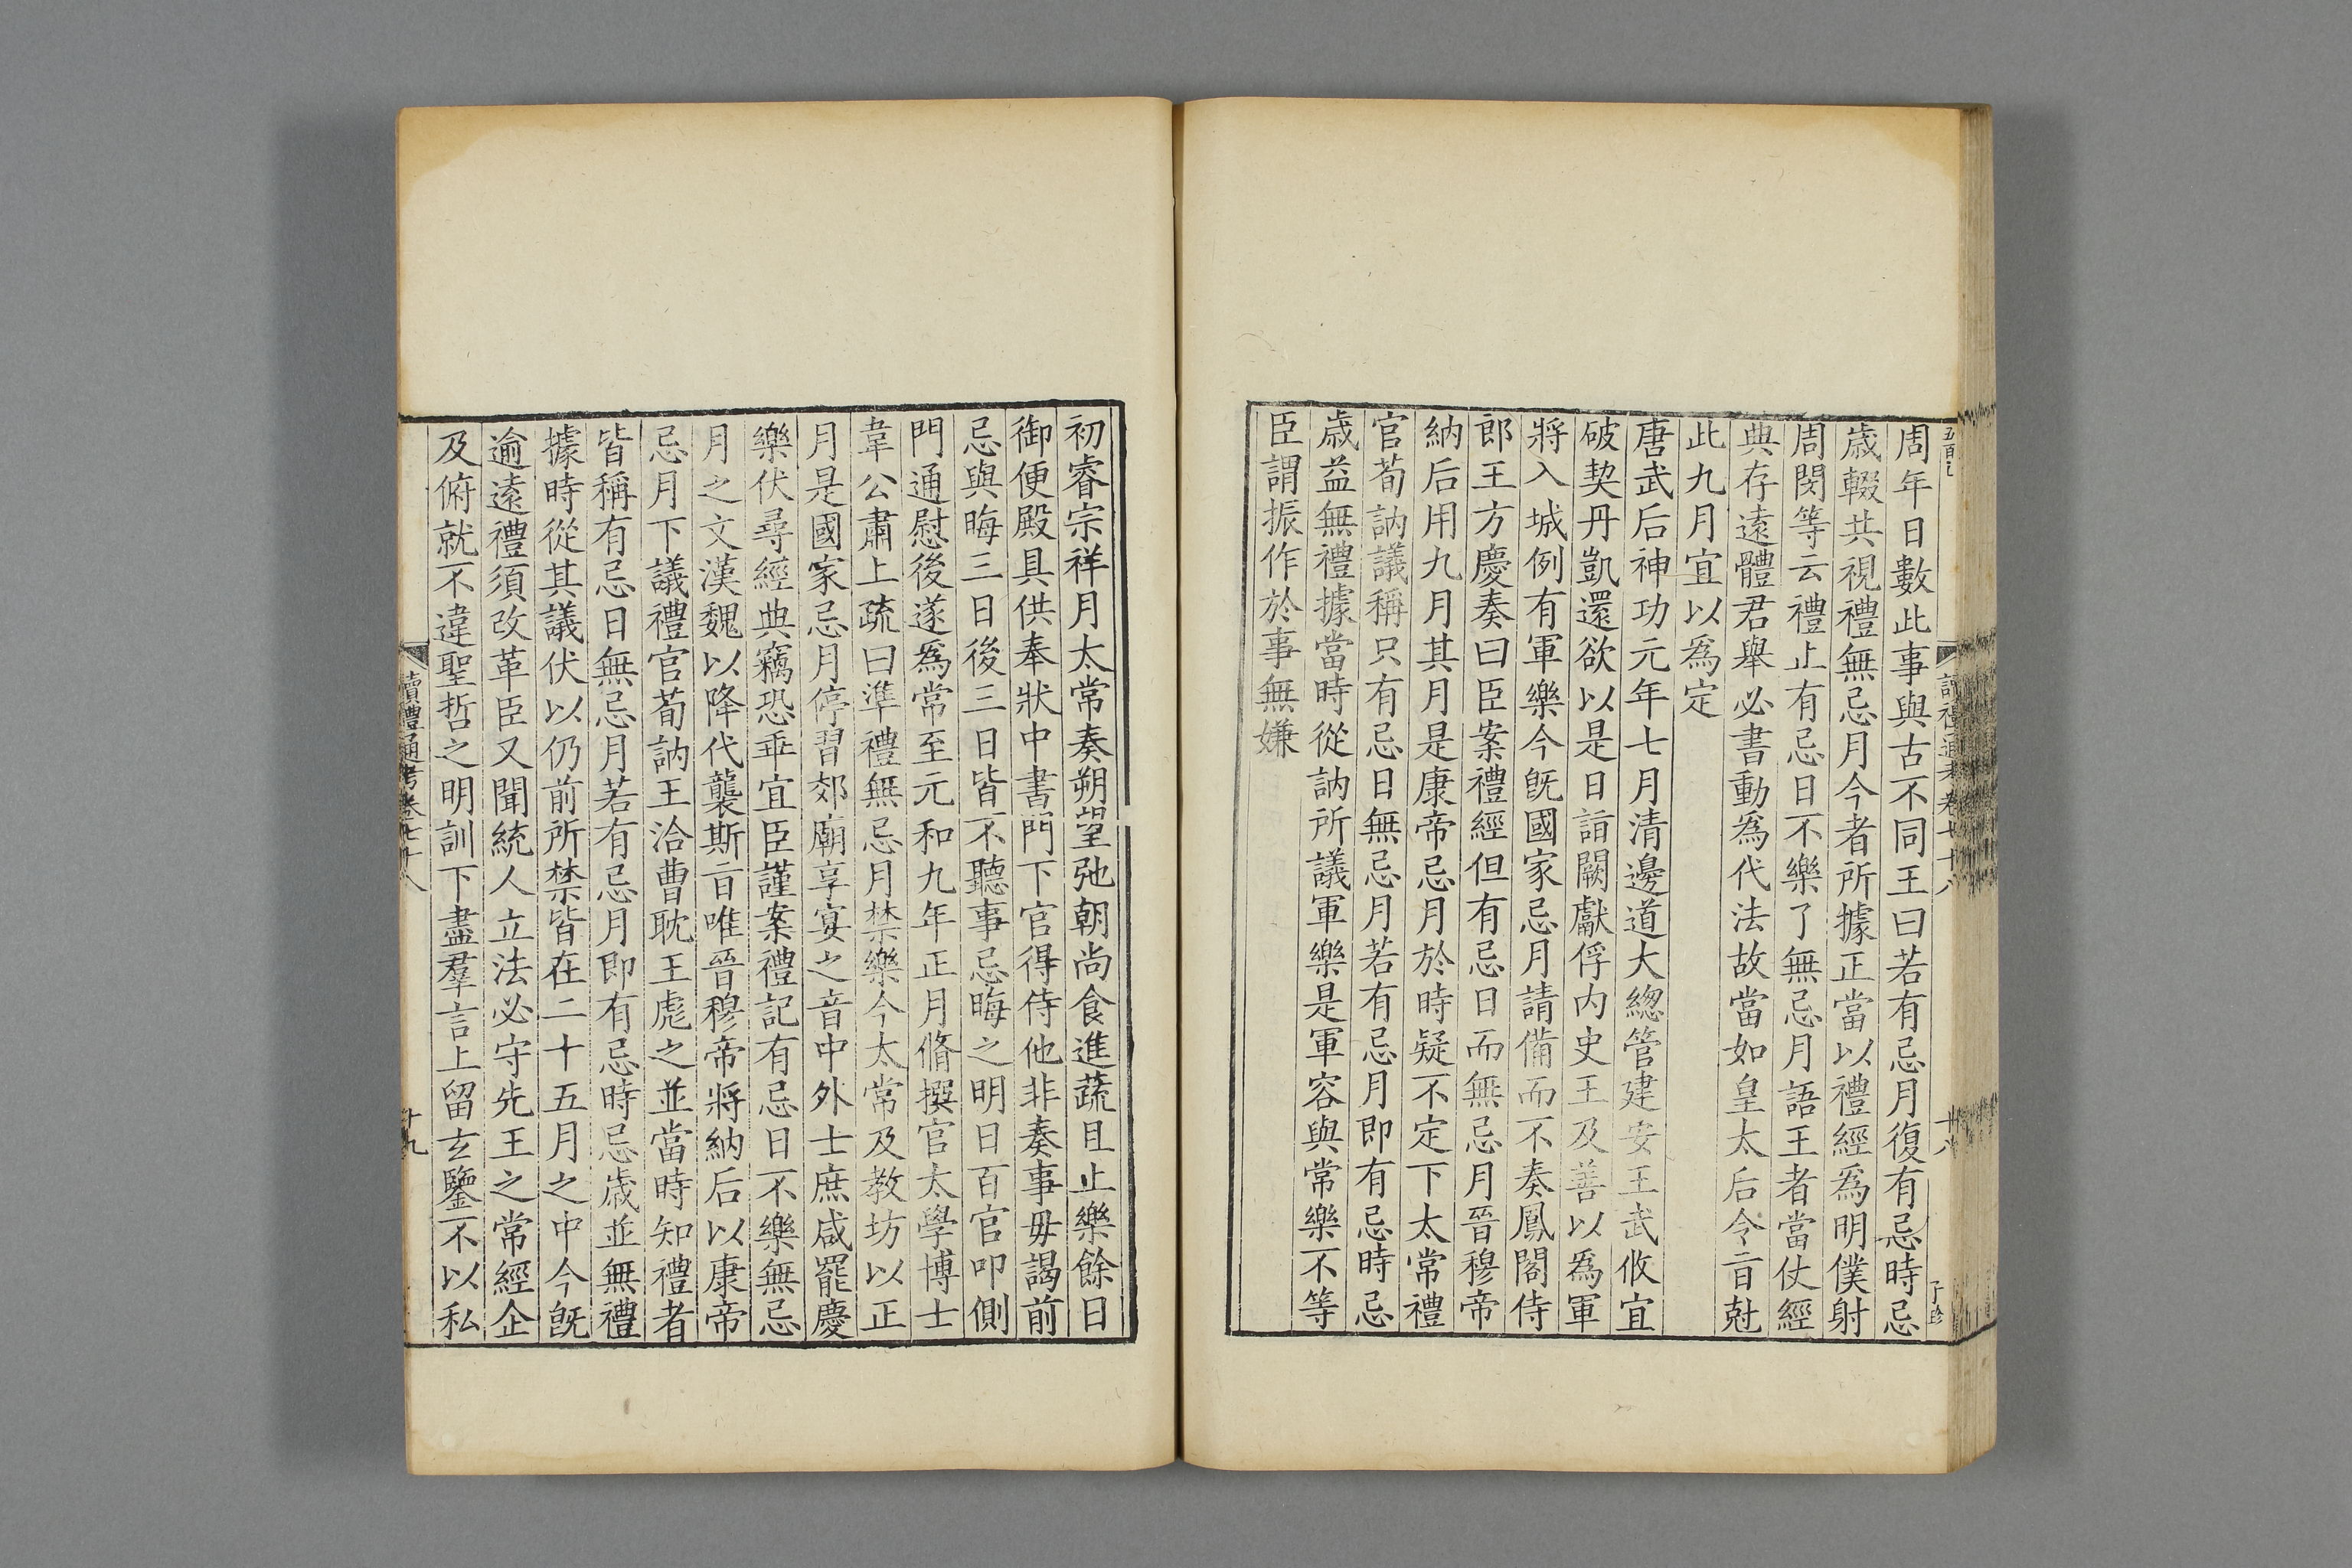 周年日數此事與古不同王曰若有忌月復有忌時忌
歳輟共視禮無忌月今者所據正當以禮經爲明僕射
周閔等云禮止有忌日不樂了無忌月語王者當仗經
典存遠體君舉必書動爲代法故當如皇太后令㫖尅
此九月宜以爲定
唐武后神功元年七月清邊道大緫管建安王武攸宜
破契丹凱還欲以是日詣闕獻俘内史王及善以爲軍
將入城例有軍樂今旣國家忌月請備而不奏鳳閣侍
郎王方慶奏曰臣案禮經但有忌日而無忌月晉穆帝
納后用九月其月是康帝忌月於時疑不定下太常禮
官荀訥議稱只有忌日無忌月若有忌月即有忌時忌
歳益無禮據當時從訥所議軍樂是軍容與常樂不等
臣謂振作於事無嫌
初睿宗祥月太常奏朔望弛朝尚食進蔬具止樂餘日
御便殿具供奉狀中書門下官得侍他非奏事毋謁前
忌與晦三日後三日皆不聽事忌晦之明日百官叩側
門通慰後遂爲常至元和九年正月脩撰官太學博士
韋公肅上疏曰準禮無忌月禁樂今太常及教坊以正
月是國家忌月停習郊廟享宴之音中外士庶咸罷慶
樂伏尋經典竊恐乖宜臣謹案禮記有忌日不樂無忌
月之文漢魏以降代襲斯㫖唯晉穆帝將納后以康帝
忌月下議禮官荀訥王洽曹耽王彪之並當時知禮者
皆稱有忌日無忌月若有忌月即有忌時忌歳並無禮
據時從其議伏以仍前所禁皆在二十五月之中今旣
逾遠禮須改革臣又聞統人立法必守先王之常經企
及俯就不違聖哲之明訓下盡羣言上留玄鑒不以私
讀禮通考卷七十八
十九